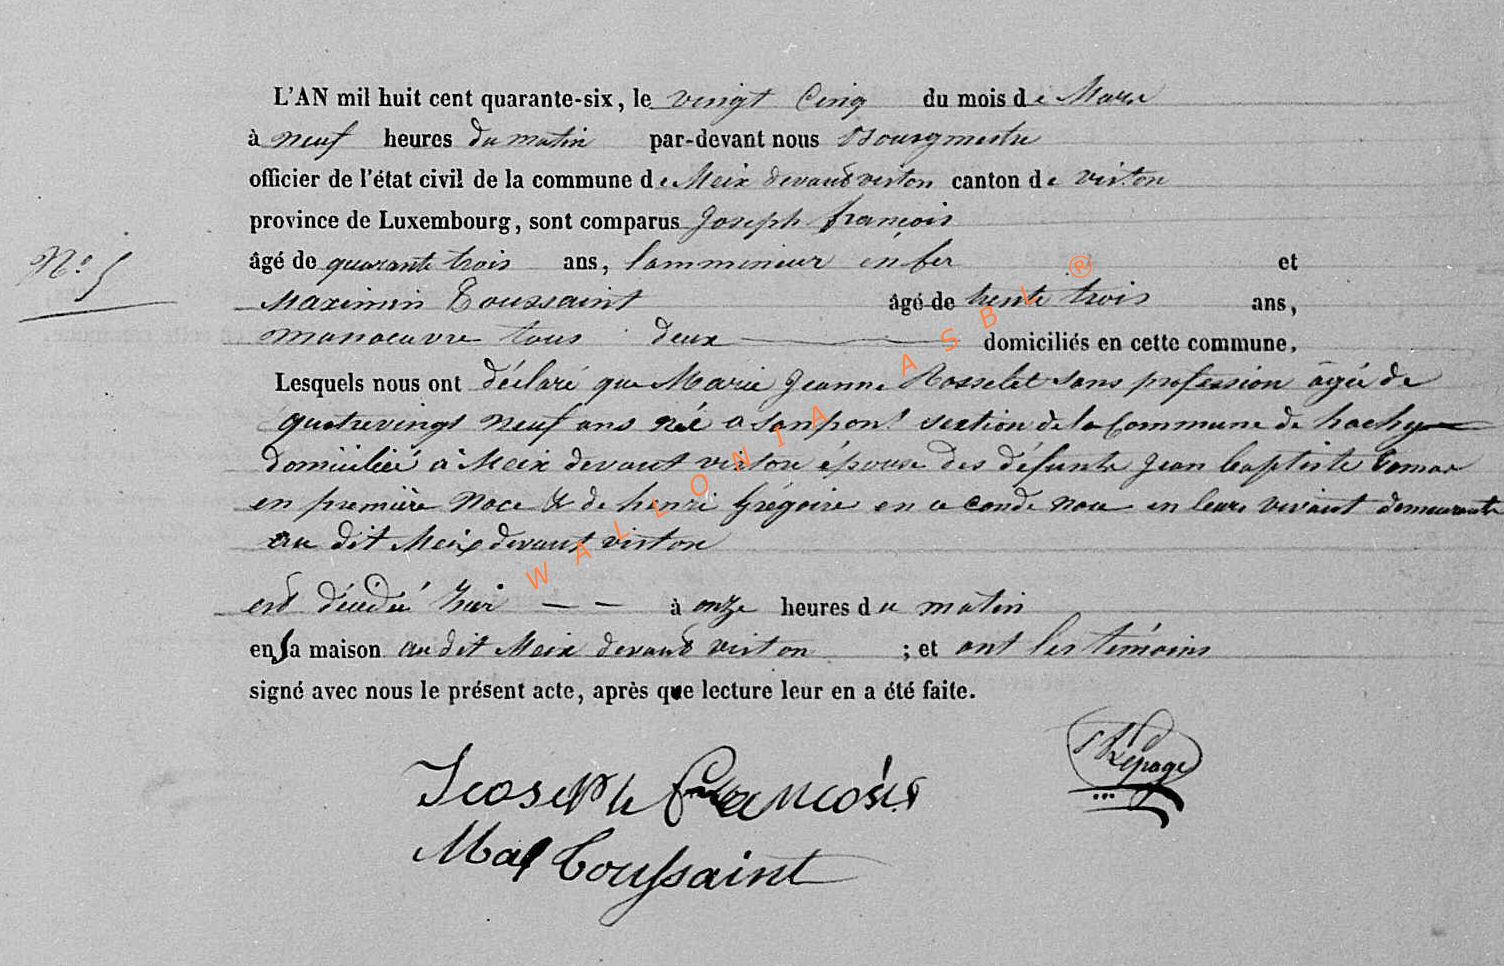 L'AN mil huit cent quarante-six, le vingt Cinq du mois de Mars
à neuf heures du matin par-devant nous Bourgmestre
officier de l'état civil de la commune de Meix devant virton canton de virton
province de Luxembourg, sont comparus Joseph françois
N° 5 âgé de quarante trois ans, lammineur en fer et
Maximin Toussaint âgé de trente trois ans,
manoeuvre tous deux domiciliés en cette commune.
Lesquels nous ont déclaré que Marie Jeanne Rosselet sans profession âgée de
quatrevingt neuf ans née a sanpont section de la Commune de hachy
domiciliée à Meix devant virton épouse des défunts Jean baptiste
en première noce & de henri Grégoire en ce conde noce en leurs vivant demeurants
au dit Meix devant virton
est décédée hier — — à onze heures du matin
en sa maison au dit Meix devant virton ; et ont les témoins
signé avec nous le présent acte, après que lecture leur en a été faite.
Lepage
Jcoseph francois
Toussaint
WALLONIA ASBL ®